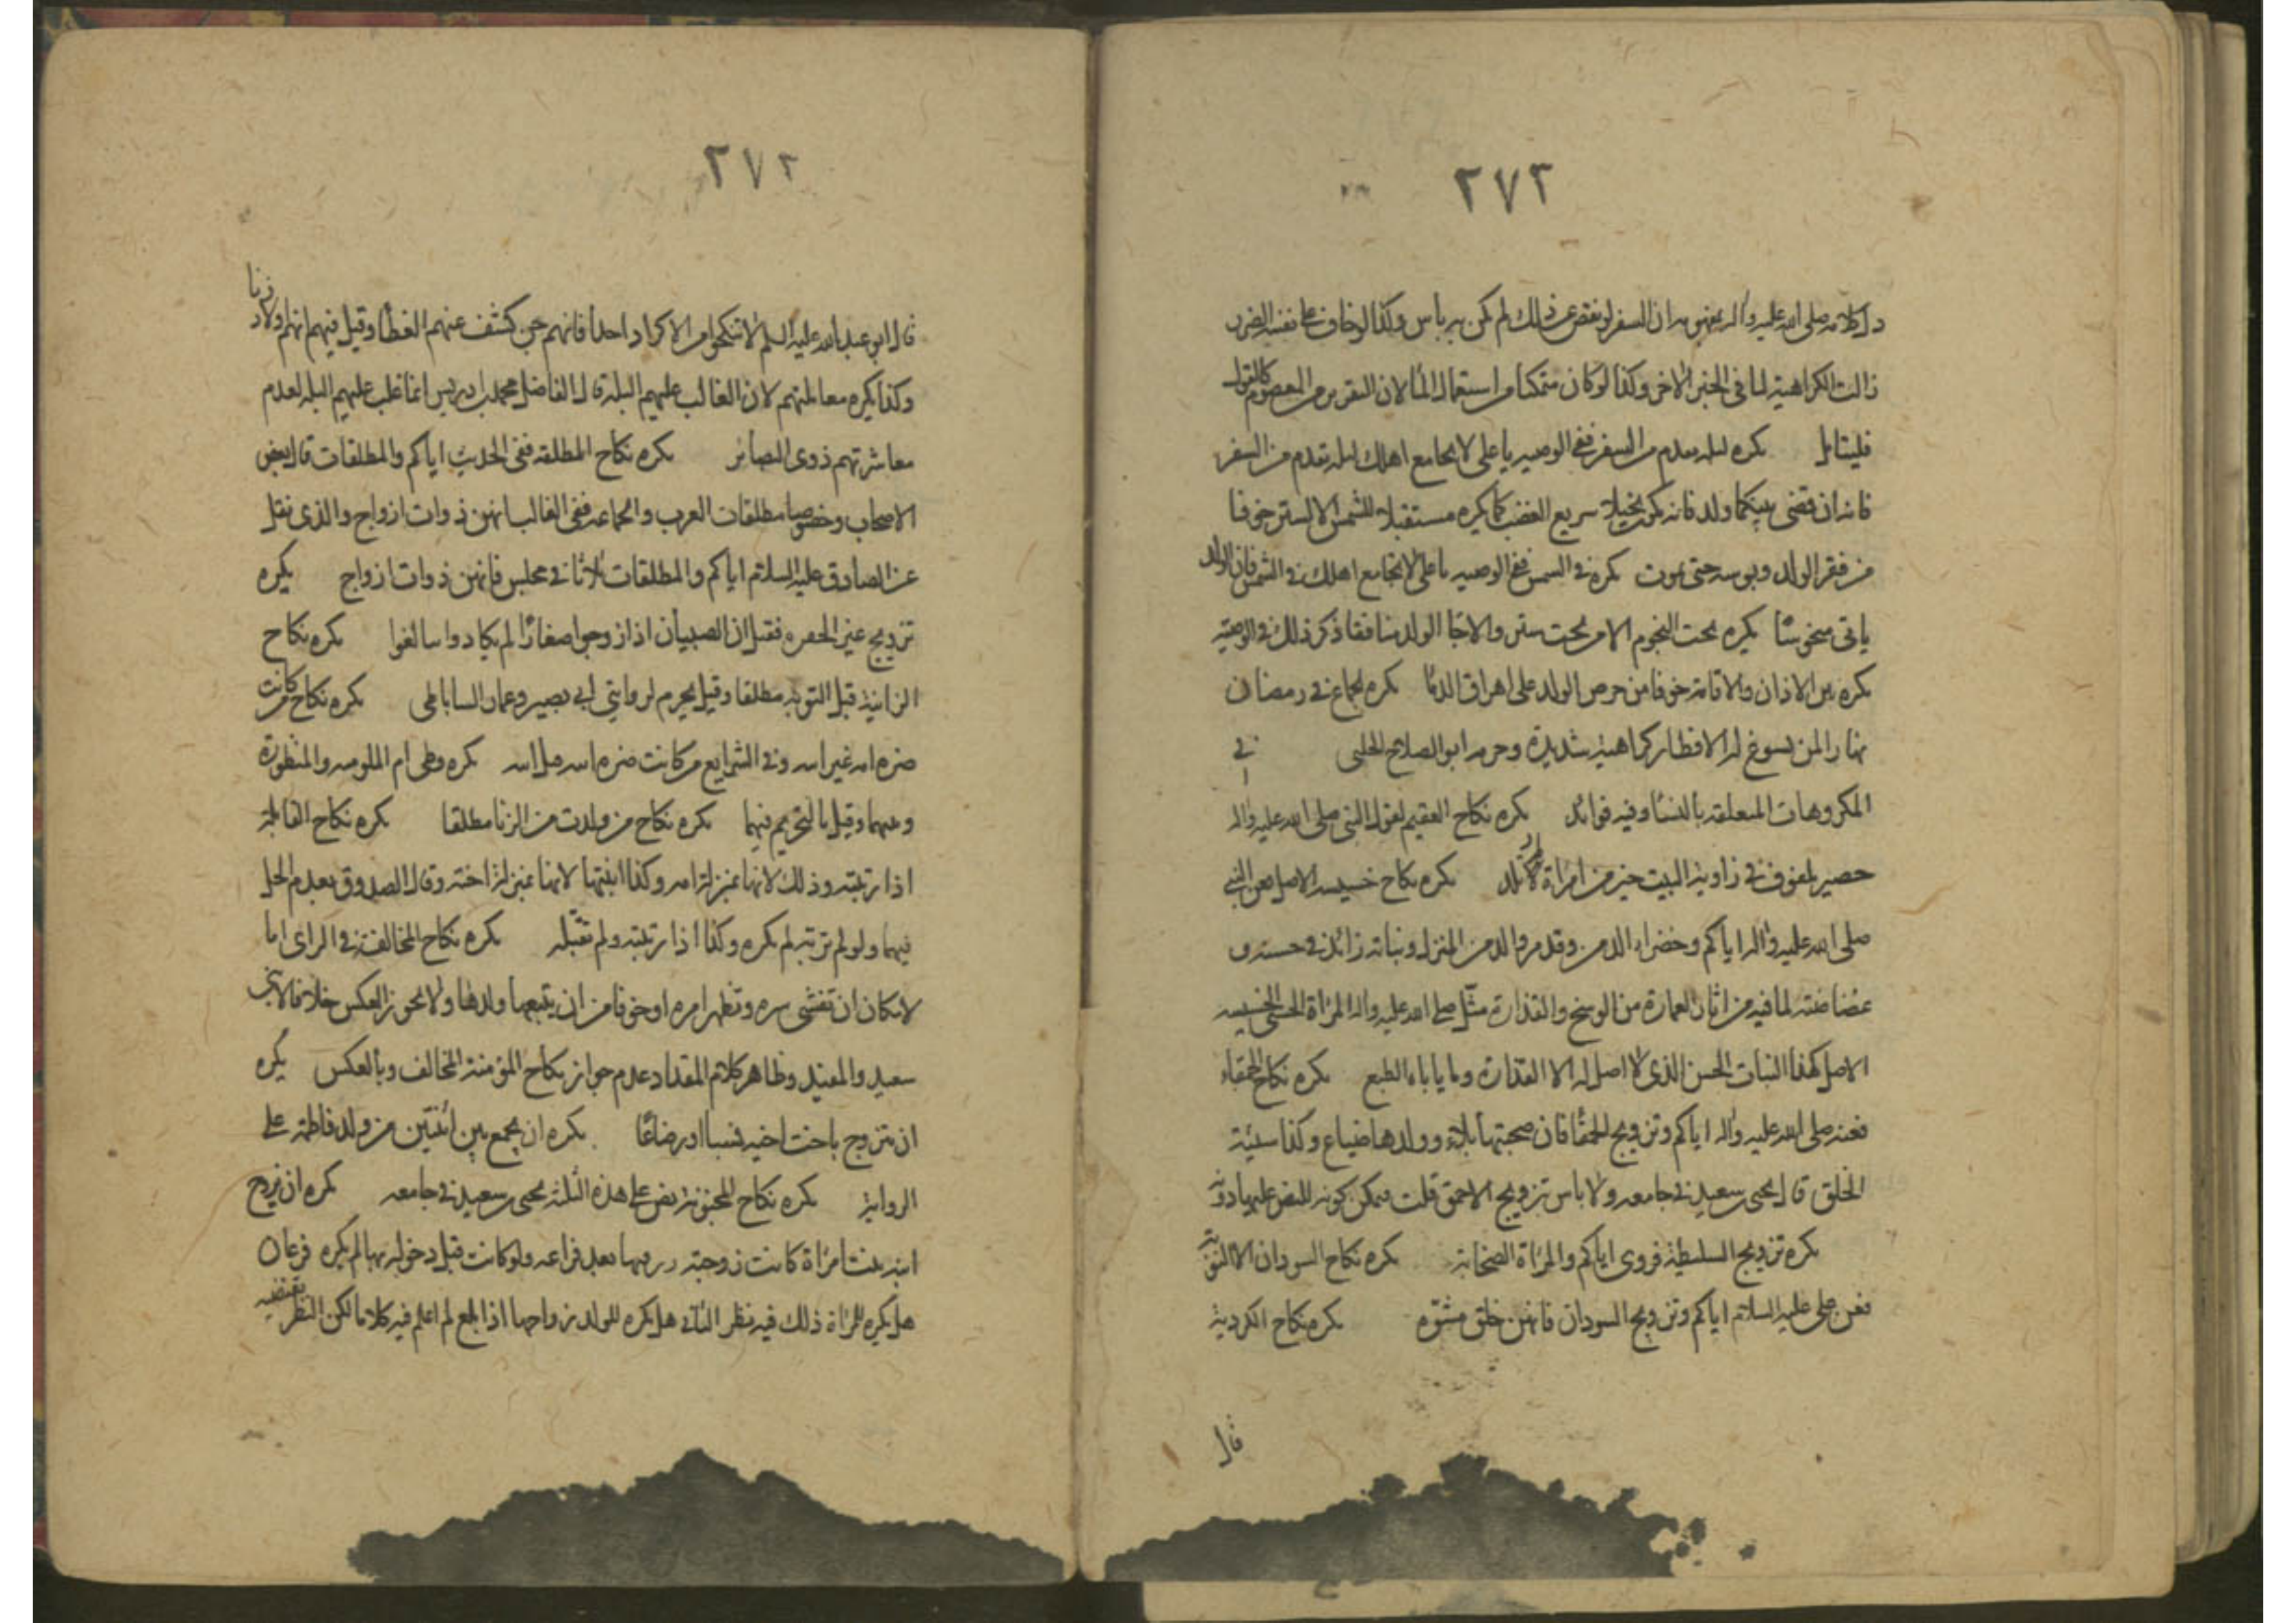 ٢٧٢
دل كلامه صلى الله عليه وآله بمفهومه ان السفر لو نقص عن ذلك لم يكن به بأس وكذا لو خاف على نفسه الضرر
زالت الكراهية لما في الخبر الاخر وكذا لو كان متمكنا من استعمال الماء لان التقرير من المعصوم كالقول
فليتامل يكره ليله يقدم من السفر ففي الوصيه يا علي لا تجامع اهلك ليله تقدم من السفر
فانه ان قضى بينكما ولد فانه يكون بخيلا سريع الغضب كما يكره مستقبلا للشمس الا لستر خوفا
من فقر الولد وبوسه حتى يموت يكره في الشمس ففي الوصيه يا علي لا تجامع اهلك في الشمس فان الولد
ياتي منحوسا يكره تحت النجوم الا من تحت ستر والا جاء الولد فقد ذكر ذلك في الوصية
يكره بين الاذان والاقامة خوفا من حرص الولد على اهراق الدماء يكره الجماع في رمضان
نهارا لمن يسوغ له الافطار كراهية شديدة وحرمه ابو الصلاح الحلبي في
المكروهات المتعلقه بالنساء وفيه فوائد يكره نكاح العقيم لقول النبي صلى الله عليه واله
حصير ملفوف في زاوية البيت خير من امراة لا تلد يكره نكاح خسيسه الاصل فعن النبي
صلى الله عليه واله اياكم وخضراء الدمن وقد مر والدمن المنزل ونباته زائد في حسنه و
غضاضته لما فيه من اثار العمارة من الوسخ والقذارة مثل صلى الله عليه واله المراة الحسنى الخسيسه
الاصل كهذا النبات الحسن الذي لا اصل له الا القذارة وما ياباه الطبع يكره نكاح الحمقاء
فعنه صلى الله عليه واله اياكم وتزويج الحمقاء فان صحبتها بلاء وولدها ضياع وكذا سيئة
الخلق قال يحيى بن سعيد في جامعه ولا باس بتزويج الاحمق قلت فيمكن كونه للنص عليها دونه
يكره تزويج السليطة فروى اياكم والمراة الصخابة يكره نكاح السودان الا النوبة
فعن علي عليه السلام اياكم وتزويج السودان فانهن خلق مشوه يكره نكاح الكردية
قال
٢٧٣
قال ابو عبد الله عليه السلم لا تنكحوا من الاكراد احدا فانهم جن كشف عنهم الغطاء وقيل فيهم انهم اولاد زنا
وكذا يكره معاملتهم لان الغالب عليهم البله قال الفاضل محمد بن ادريس انما غلب عليهم البله لعدم
معاشرتهم ذوى البصائر يكره نكاح المطلقه ففي الحديث اياكم والمطلقات قال بعض
الاصحاب وخصوصا مطلقات العرب والجماعه ففي الغالب انهن ذوات ازواج والذى نقل
عن الصادق عليه السلام اياكم والمطلقات ثلاثا في مجلس فانهن ذوات ازواج يكره
تزويج غير فقيل ان الصبيان اذا زوجوا صغارا لم يكادوا يتالفوا يكره نكاح
الزانية قبل التوبه مطلقا وقيل يحرم لروايتي ابي بصير وعمار الساباطي يكره نكاح من كانت
ضره امه غير ابيه وفي الشرايع من كانت ضره امه قبل ابيه يكره وطى ام الملموسه والمنظورة
وقيل بالتحريم فيهما يكره نكاح من ولدت من الزنا مطلقا يكره نكاح القابلة
اذا ربته وذلك لانها بمنزلة امه وكذا ابنتها لانها بمنزلة اخته وقال الصدوق بعدم الحل
فيهما ولو لم تربه لم يكره وكذا اذا ربته ولم تقبله يكره نكاح المخالفة في الراى اما
لامكان ان تفشى سره وتظهر امره او خوفا من ان يتبعها ولدها ولا يجوز العكس خلافا لابني
سعيد والمفيد وظاهر كلام المقداد عدم جواز نكاح المؤمنة المخالف وبالعكس يكره
ان يتزوج باخت اخيه نسبا او رضاعا يكره ان يجمع بين اثنتين من ولد فاطمة على
الرواية يكره نكاح المجنونة نص على هذه الثلثة يحيى بن سعيد في جامعه يكره ان يزوج
ابنه بنت امراة كانت زوجته بعد فراقه ولو كانت قبل دخوله بها لم يكره فرعان
هل يكره للمراة ذلك فيه نظر الثاني هل يكره للولد زواجها اذا بلغ لم اعلم فيه كلاما لكن النظر يقتضيه